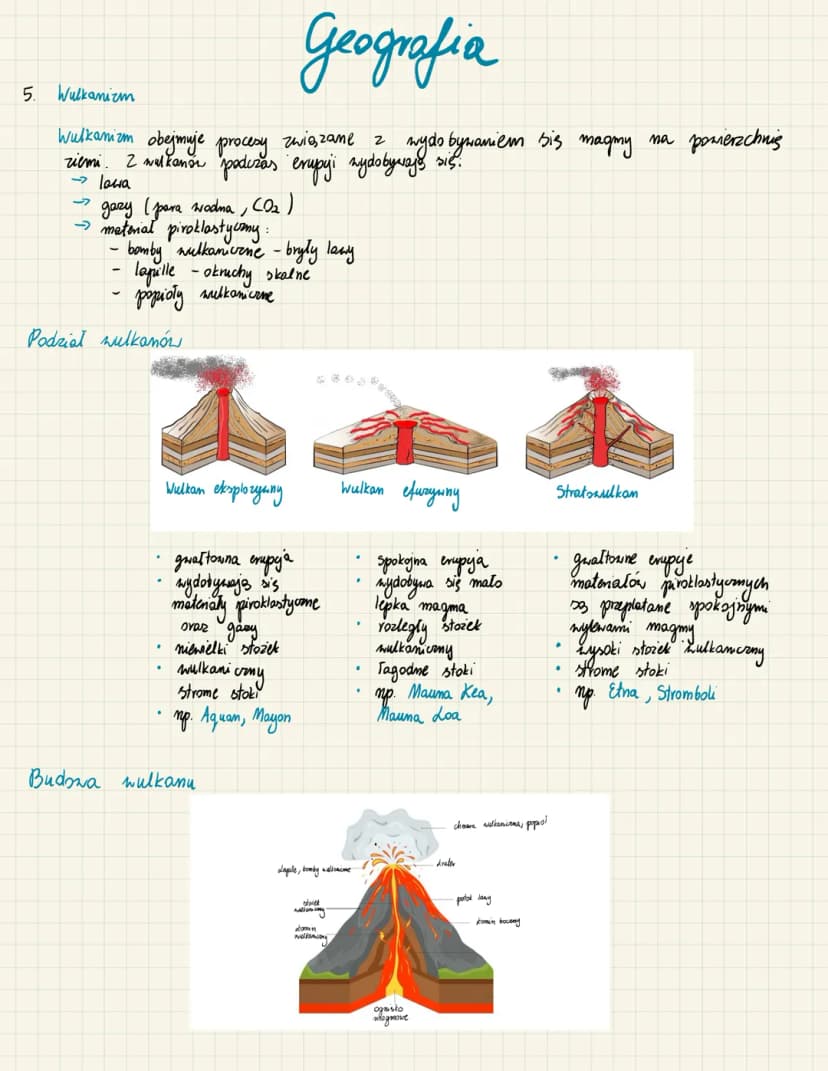 Geografia
5. Wulkanizm
Wulkanizm obejmuje procesy związane z wydobywaniem się magmy na powierzchnię
ziemi. Z wulkanów podczas erupcji wydobywają się:
→ lawa
→ gazy (para wodna, CO₂)
→ materiał piroklastyczny:
- bomby wulkaniczne - bryły lawy
- lapille - okruchy skalne
- popioły wulkaniczne
Podział wulkanów
Wulkan eksplozywny
Wulkan efuzywny
Stratowulkan
• gwałtowna erupcja
• wydobywają się
materiały piroklastyczne
oraz gazy
• niewielki stożek
• wulkaniczny
strome stoki
• np. Aquan, Mayon
• spokojna erupcja
• wydobywa się mało
lepka magma
• rozległy stożek
wulkaniczny
• łagodne stoki
• np. Mauna Kea,
Mauna Loa
• gwałtowne erupcje
materiałów piroklastycznych
są przeplatane spokojnymi
wylewami magmy
• wysoki stożek wulkaniczny
• strome stoki
• np. Etna, Stromboli
Budowa wulkanu
chmura wulkaniczna, popiół
krater
lapille, bomby wulkaniczne
potok lawy
stożek
wulkaniczny
komin boczny
komin
wulkaniczny
ognisko
magmowe